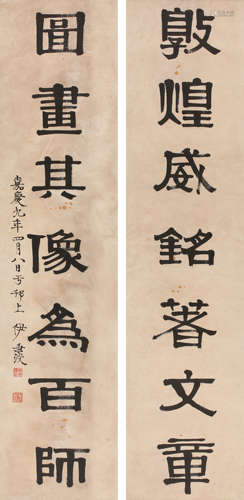 敦煌威銘著文章
圖畫其像為百師
嘉慶九年四月八日于邗上 伊秉綬